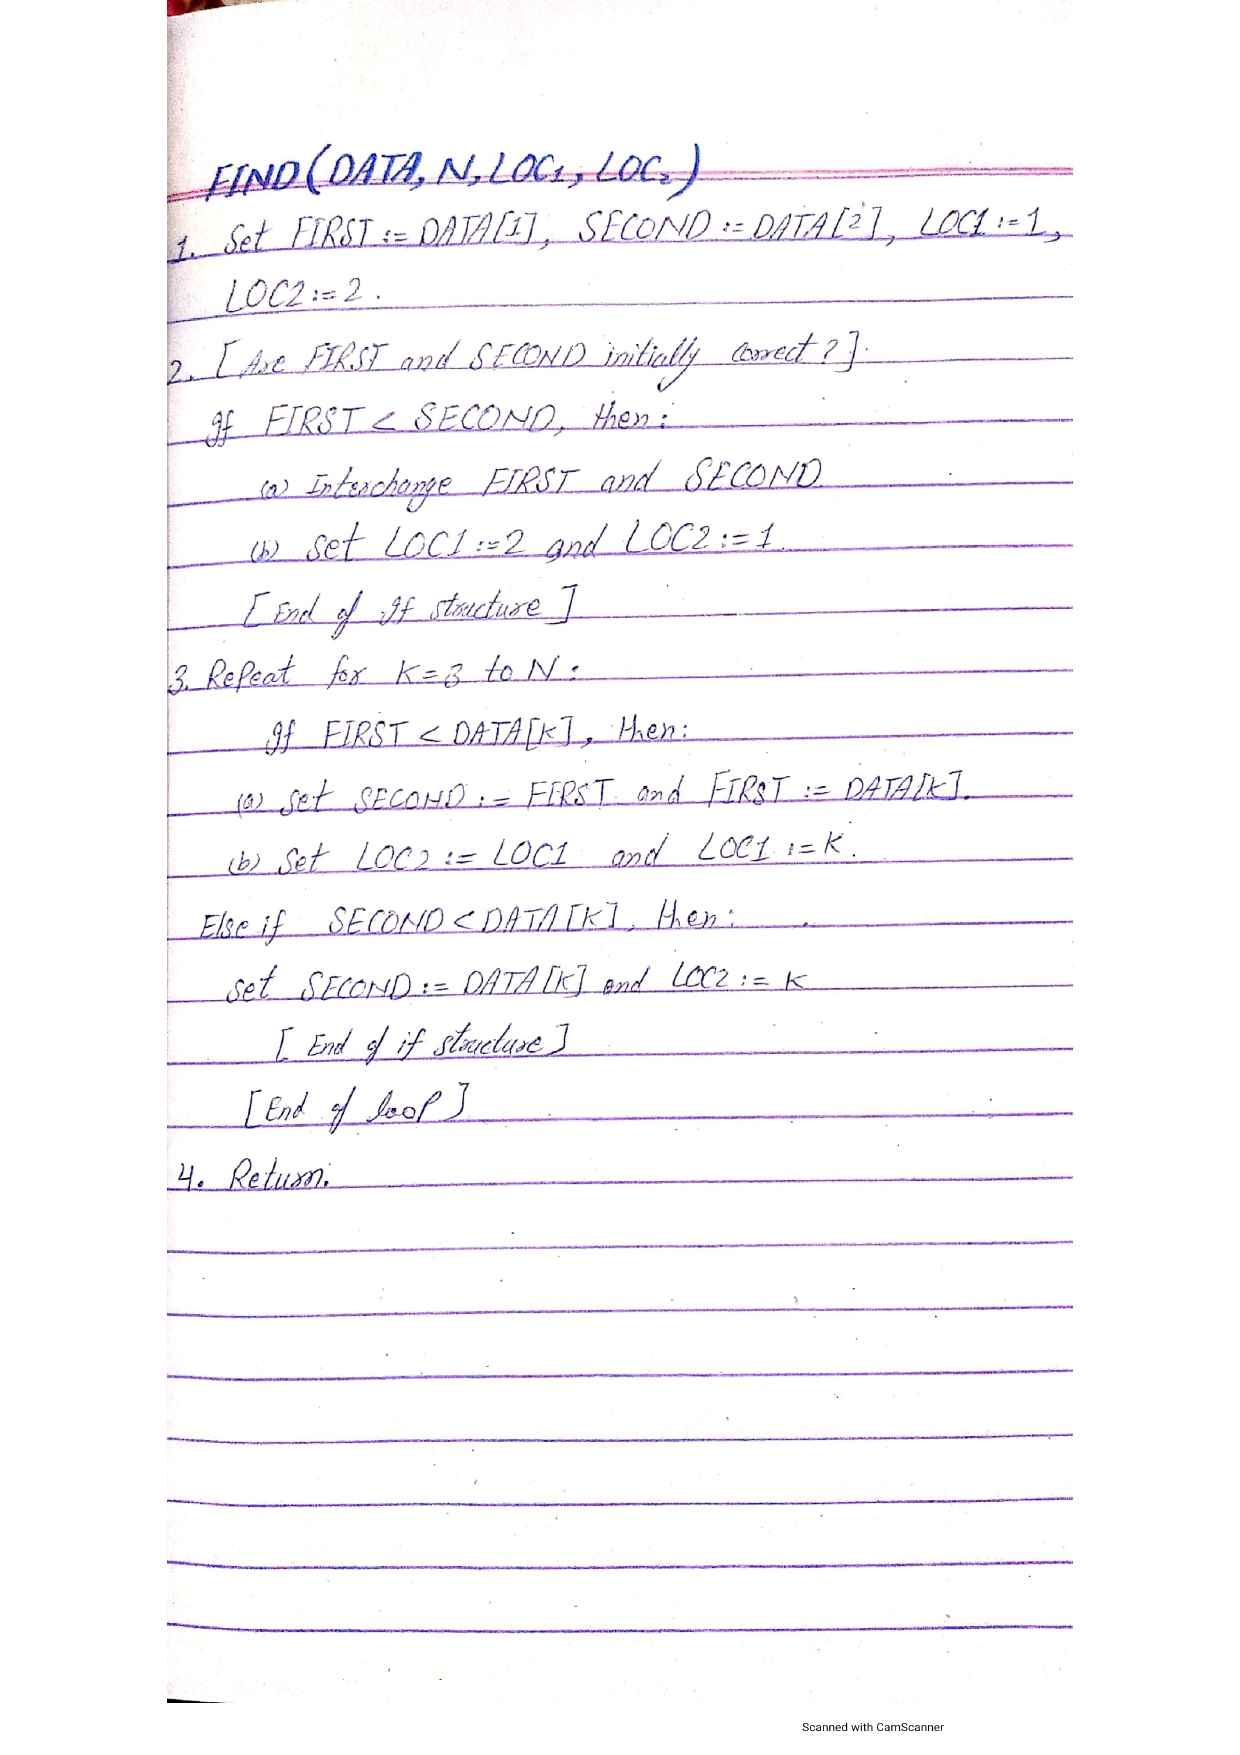 FIND(DATA, N, LOC₁, LOC₂)
1. Set FIRST := DATA[1], SECOND := DATA[2], LOC1 := 1,
LOC2 := 2.
2. [Are FIRST and SECOND initially correct?].
If FIRST < SECOND, then:
(a) Interchange FIRST and SECOND
(b) set LOC1 := 2 and LOC2 := 1.
[End of If structure]
3. Repeat for K = 3 to N:
If FIRST < DATA[K], then:
(a) set SECOND := FIRST and FIRST := DATA[K].
(b) Set LOC2 := LOC1 and LOC1 := K.
Else if SECOND < DATA[K], then:
set SECOND := DATA[K] and LOC2 := K
[End of if structure]
[End of loop]
4. Return.
Scanned with CamScanner